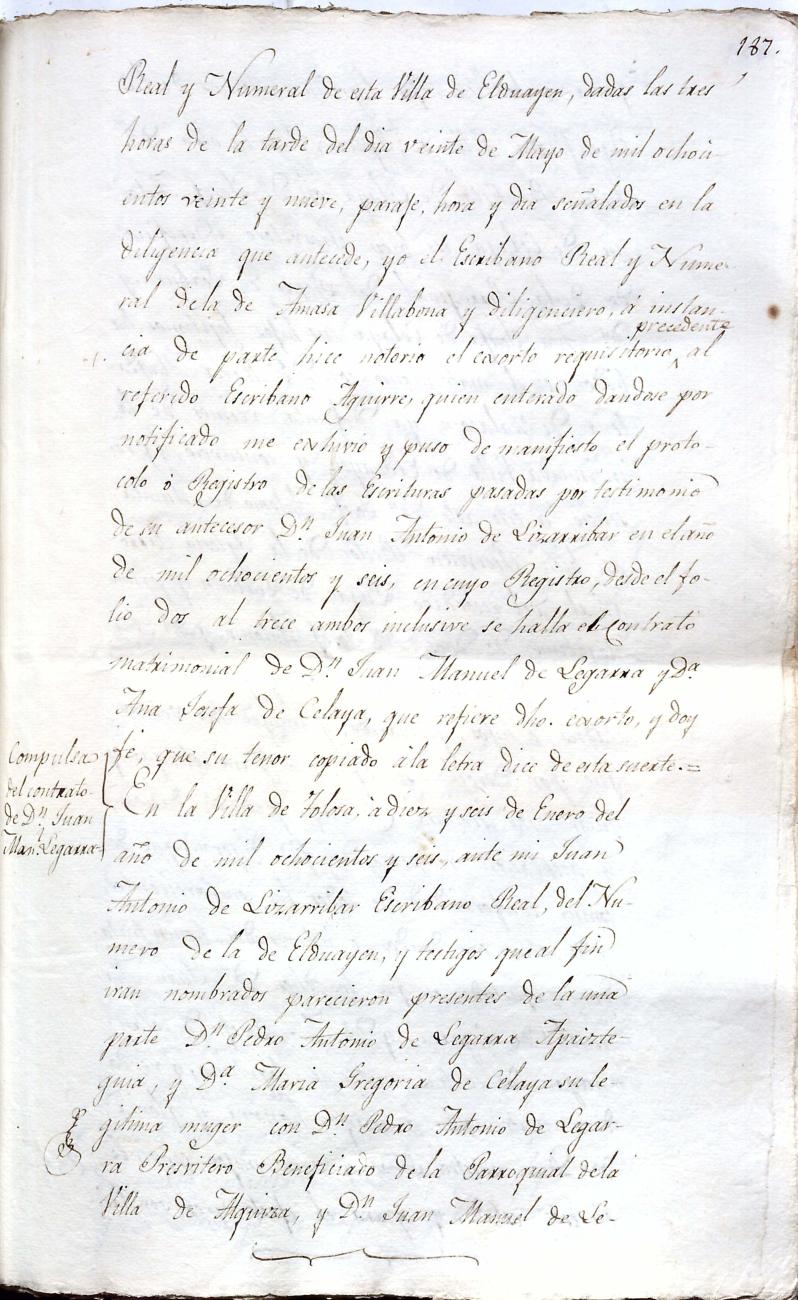 187.
Real y Numeral de esta Villa de Elduayen, dadas las tres
horas de la tarde del dia veinte de Mayo de mil ochoci-
entos veinte y nueve, paraje, hora y dia señalados en la
diligencia que antecede, yo el Escribano Real y Nume-
ral dela de Amasa Villabona y diligenciero, á instan-
precedente
cia de parte hice notorio el exorto requisitorio ^ al
referido Escribano Aguirre, quien enterado dandose por
notificado me exhivio y puso de manifiesto el proto-
colo ó Rejistro delas Escrituras pasadas por testimonio
de su antecesor Dn Juan Antonio de Lizarribar en el año
de mil ochocientos y seis, en cuyo Registro, desde el fo-
lio dos al trece ambos inclusive se halla el Contrato
matrimonial de Dn Juan Manuel de Legarra y Da
Ana Josefa de Celaya, que refiere dho. exorto, y doy
fé, que su tenor copiado ála letra dice de esta suerte.=
Compulsa
del contrato
de Dn Juan
Manl Legarra
En la Villa de Tolosa, á diez y seis de Enero del
año de mil ochocientos y seis, ante mi Juan
Antonio de Lizarribar Escribano Real, del Nu-
mero de la de Elduayen, y testigos que al fin
iran nombrados parecieron presentes de la una
parte Dn Pedro Antonio de Legarra Apaizte-
guia, y Da Maria Gregoria de Celaya su le-
gitima muger con Dn Pedro Antonio de Legar-
ra Presvitero Beneficiado de la Parroquial dela
Villa de Alquiza, y Dn Juan Manuel de Le-